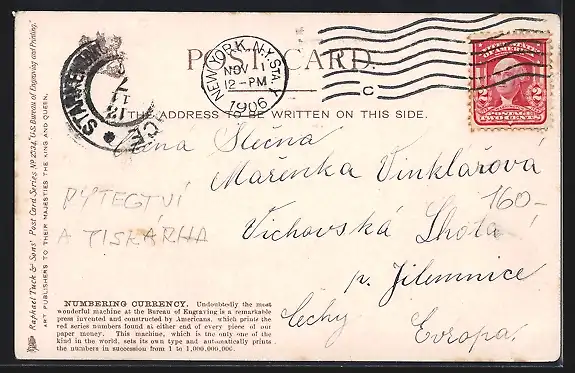 POST CARD.
NEW YORK, N.Y. STA. Y
NOV 1
12-PM
1906
C
UNITED STATES OF AMERICA
2 2
POSTAGE
TWO CENTS
THE ADDRESS TO BE WRITTEN ON THIS SIDE.
Slečna
Mařenka Vinklářová
160-
Vichovská Lhota
p. Jilemnice
Čechy Evropa.
RYTECTVÍ
A TISKÁRNA
NUMBERING CURRENCY. Undoubtedly the most
wonderful machine at the Bureau of Engraving is a remarkable
press invented and constructed by Americans, which prints the
red series numbers found at either end of every piece of our
paper money. This machine, which is the only one of the
kind in the world, sets its own type and automatically prints
the numbers in succession from 1 to 1,000,000,000.
Raphael Tuck & Sons' Post Card Series No 2534, "U.S. Bureau of Engraving and Printing."
ART PUBLISHERS TO THEIR MAJESTIES THE KING AND QUEEN.